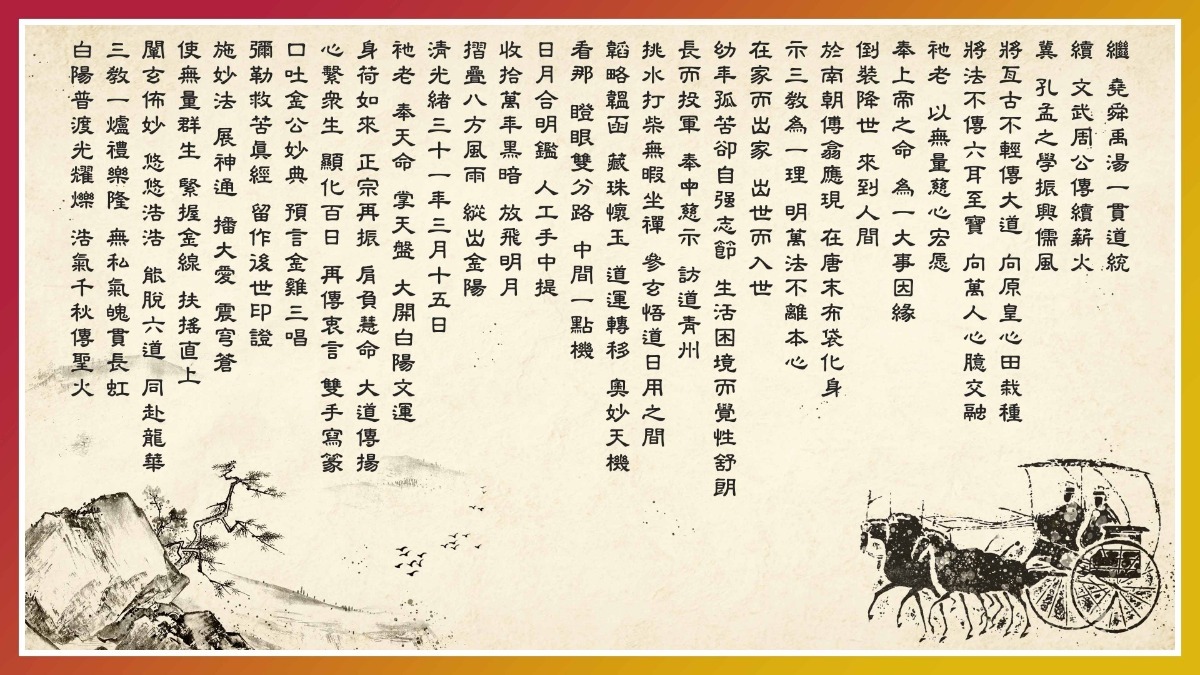 繼 堯舜禹湯一貫道統
續 文武周公傳續薪火
冀 孔孟之學振興儒風
將亙古不輕傳大道 向原皇心田栽種
將法不傳六耳至寶 向萬人心臆交融
祂老 以無量慈心宏愿
奉上帝之命 為一大事因緣
倒裝降世 來到人間
於南朝傅翕應現 在唐末布袋化身
示三教為一理 明萬法不離本心
在家而出家 出世而入世
幼年孤苦卻自强志節 生活困境而覺性舒朗
長而投軍 奉中慈示 訪道青州
挑水打柴無暇坐禪 參玄悟道日用之間
韜略韞函 藏珠懷玉 道運轉移 奧妙天機
看那 瞪眼雙分路 中間一點機
日月合明鑑 人工手中提
收拾萬年黑暗 放飛明月
摺疊八方風雨 縱出金陽
清光緒三十一年三月十五日
祂老 奉天命 掌天盤 大開白陽文運
身荷如來 正宗再振 肩負慧命 大道傳揚
心繫衆生 顯化百日 再傳衷言 雙手寫篆
口吐金公妙典 預言金雞三唱
彌勒救苦眞經 留作後世印證
施妙法 展神通 播大愛 震穹蒼
使無量群生 緊握金線 扶搖直上
闡玄佈妙 悠悠浩浩 能脫六道 同赴龍華
三教一爐禮樂隆 無私氣魄貫長虹
白陽普渡光耀爍 浩氣千秋傳聖火